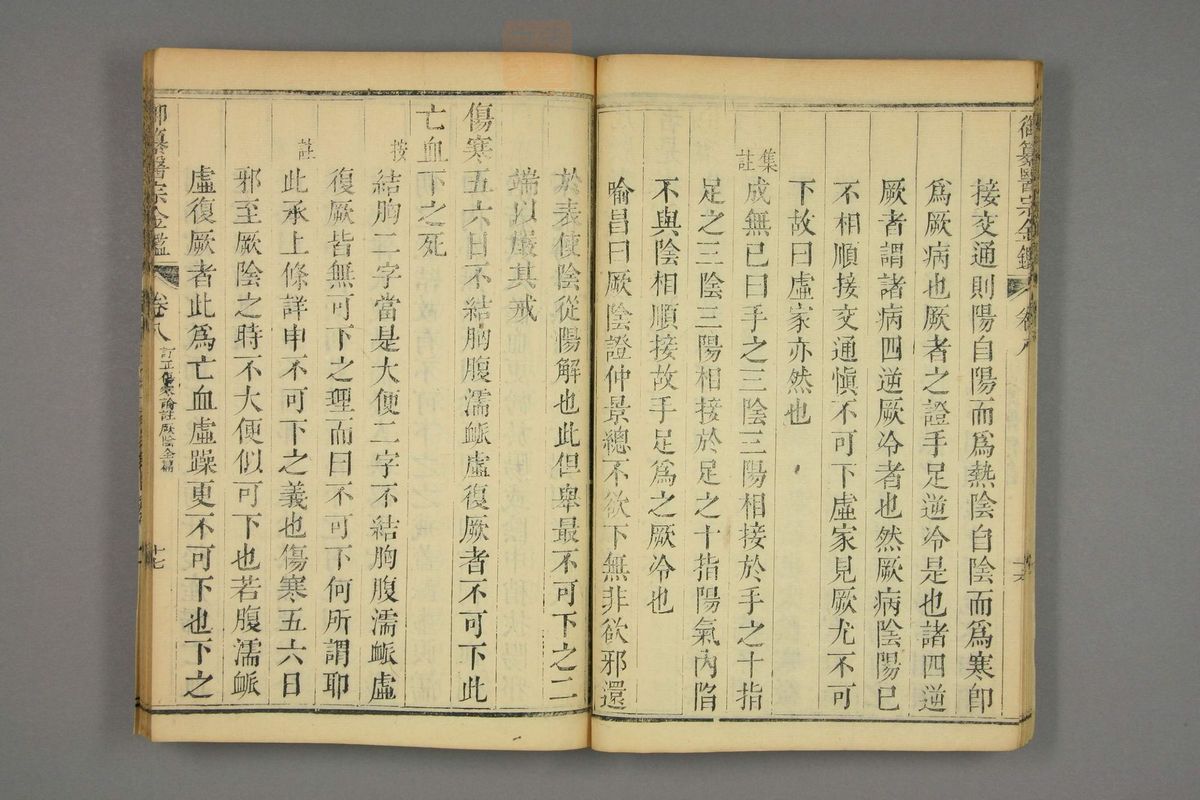 御纂醫宗金鑑
卷八
接交通則陽自陽而爲熱陰自陰而爲寒卽
爲厥病也厥者之證手足逆冷是也諸四逆
厥者謂諸病四逆厥冷者也然厥病陰陽已
不相順接交通愼不可下虛家見厥尤不可
下故曰虛家亦然也
集註
成無已曰手之三陰三陽相接於手之十指
足之三陰三陽相接於足之十指陽氣內陷
不與陰相順接故手足爲之厥冷也
喻昌曰厥陰證仲景總不欲下無非欲邪還
於表使陰從陽解也此但舉最不可下之二
端以嚴其戒
傷寒五六日不結胸腹濡衇虛復厥者不可下此
亡血下之死
按
結胸二字當是大便二字不結胸腹濡衇虛
復厥皆無可下之理而曰不可下何所謂耶
註
此承上條詳申不可下之義也傷寒五六日
邪至厥陰之時不大便似可下也若腹濡衇
虛復厥者此爲亡血虛躁更不可下也下之
御纂醫宗金鑑
卷八
訂正傷寒論註厥陰全篇
十七